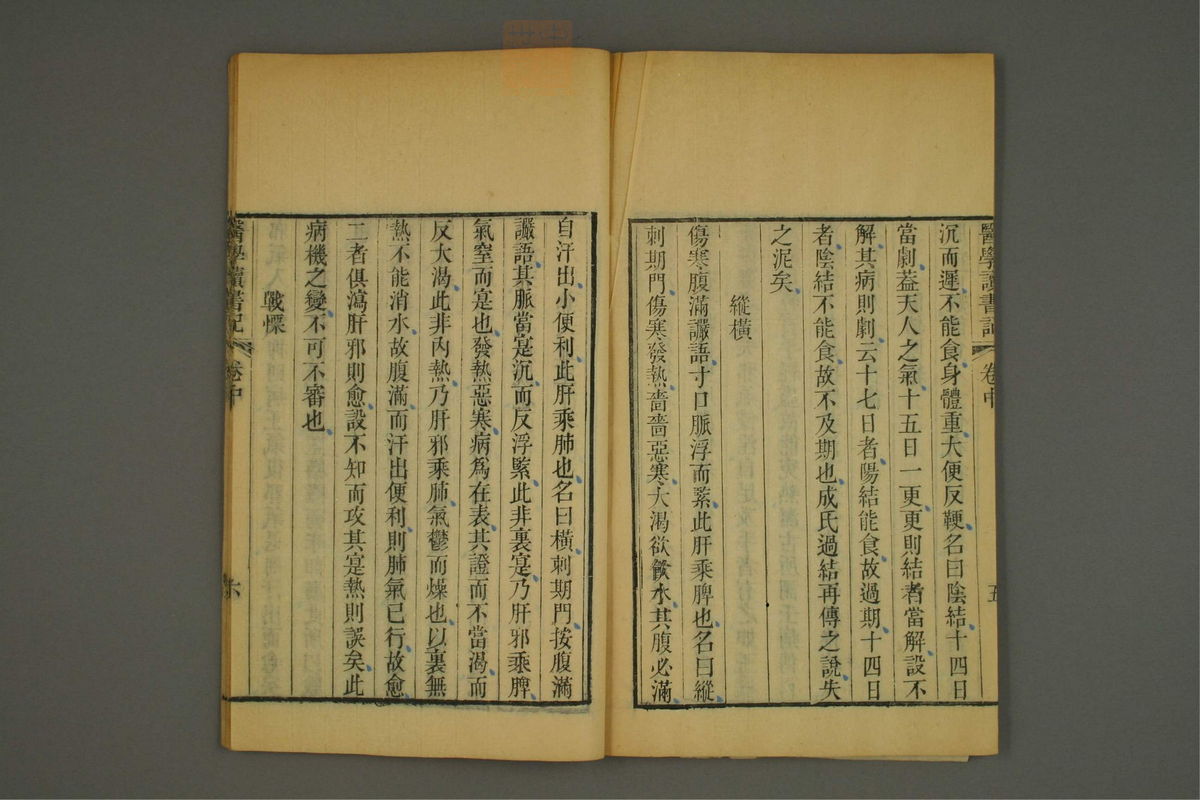 醫學讀書記
卷中
五
沉而遲不能食身體重大便反鞕名曰陰結十四日
當劇葢天人之氣十五日一更更則結者當解設不
解其病則劇云十七日者陽結能食故過期十四日
者陰結不能食故不及期也成氏過結再傳之說失
之泥矣
縱橫
傷寒腹滿讝語寸口脈浮而緊此肝乘脾也名曰縱
刺期門傷寒發熱嗇嗇惡寒大渴欲飲水其腹必滿
自汗出小便利此肝乘肺也名曰橫刺期門按腹滿
讝語其脈當寔沉而反浮緊此非裏寔乃肝邪乘脾
氣窒而寔也發熱惡寒病爲在表其證而不當渴而
反大渴此非內熱乃肝邪乘肺氣鬱而燥也以裏無
熱不能消水故腹滿而汗出便利則肺氣已行故愈
二者俱瀉肝邪則愈設不知而攻其寔熱則誤矣此
病機之變不可不審也
戰慄
醫學讀書記
卷中
六